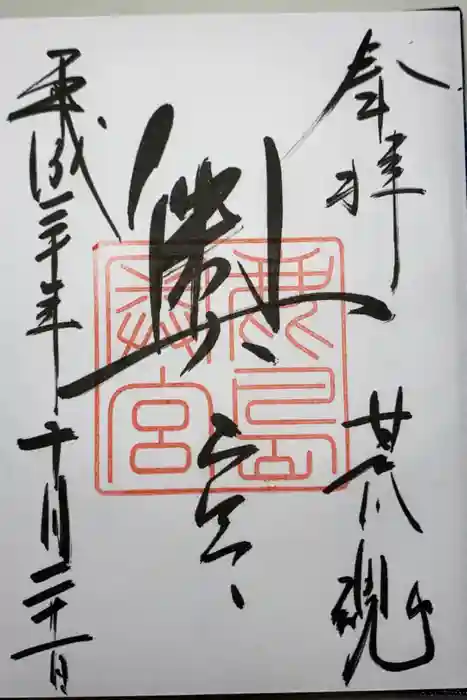 奉拝
荒魂
奥宮
鹿島奥宮
平成三十年十月二十一日